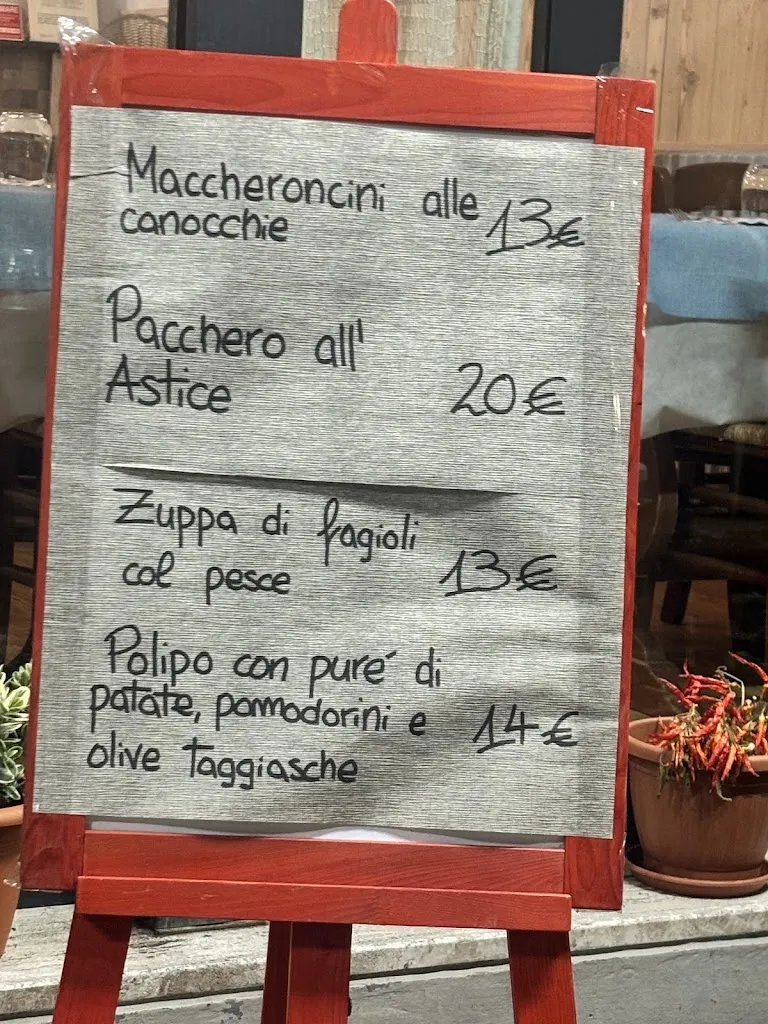 Maccheroncini alle
canocchie 13€
Pacchero all'
Astice 20€
Zuppa di fagioli
col pesce 13€
Polipo con puré di
patate, pomodorini e 14€
olive taggiasche